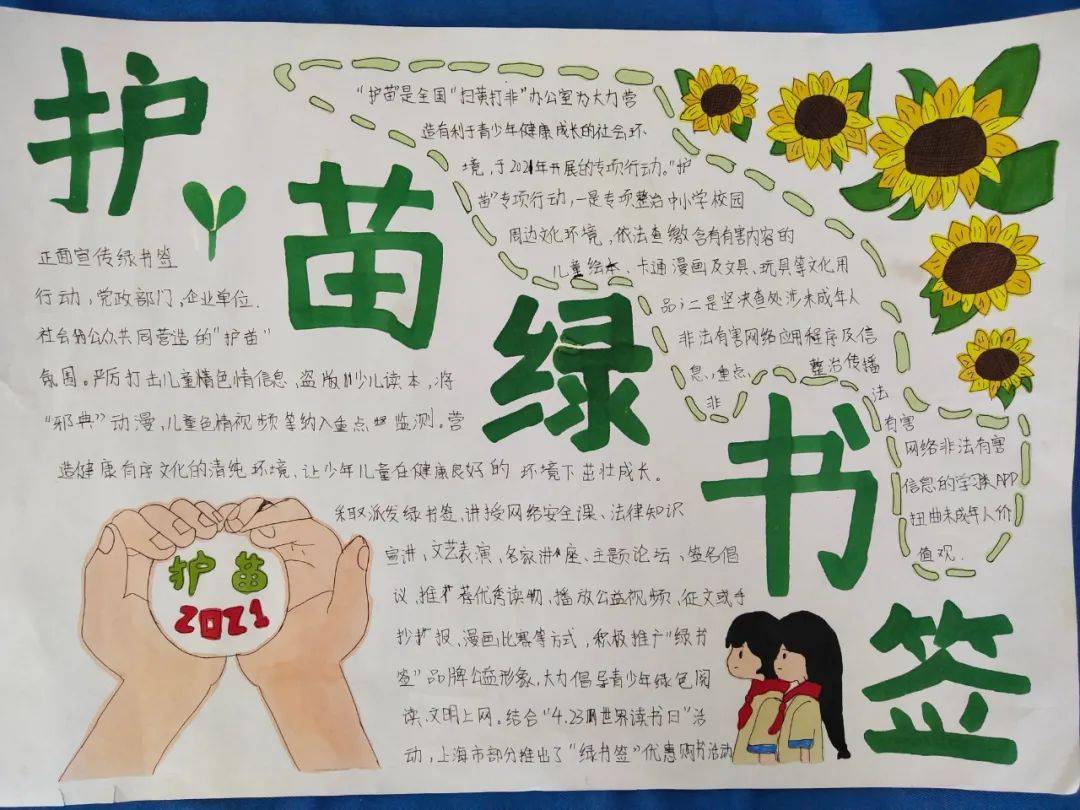 护苗绿书签
"护苗"是全国"扫黄打非"办公室为大力营
造有利于青少年健康成长的社会环
境，于2021年开展的专项行动。"护
苗"专项行动，一是专项整治中小学校园
周边文化环境，依法查缴含有有害内容的
儿童绘本、卡通漫画及文具、玩具等文化用
品；二是坚决查处涉未成年人
非法有害网络应用程序及信
息，重点 整治传播
非 法
有害
网络非法有害
信息的学习类APP
扭曲未成年人价
值观．
正面宣传绿书签
行动，党政部门，企业单位．
社会的公众共同营造的"护苗"
氛围。严厉打击儿童情色情信息，盗版少儿读本，将
"邪典"动漫，儿童色情视频等纳入重点 监测。营
造健康有序文化的清纯环境，让少年儿童在健康良好的环境下茁壮成长。
采取派发绿书签，讲授网络安全课、法律知识
宣讲、文艺表演、名家讲座、主题论坛、签名倡
议，推荐优秀读物，播放公益视频，征文或手
抄报、漫画比赛等方式，积极推广"绿书
签"品牌公益形象，大力倡导青少年绿色阅
读、文明上网。结合"4.23世界读书日"活
动，上海市部分推出了"绿书签"优惠购书活动
护苗
2021